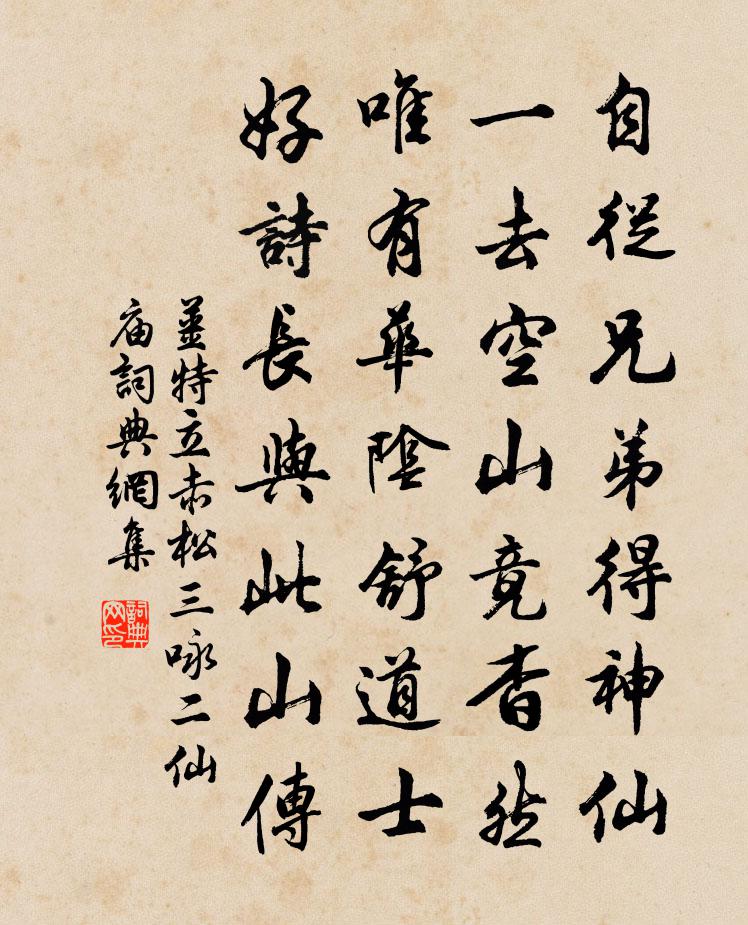 自從兄弟得神仙
一去空山竟杳然
唯有華陰舒道士
好詩長與此山傳
薑特立赤松三咏二仙
庙詞典網集
詞典网印